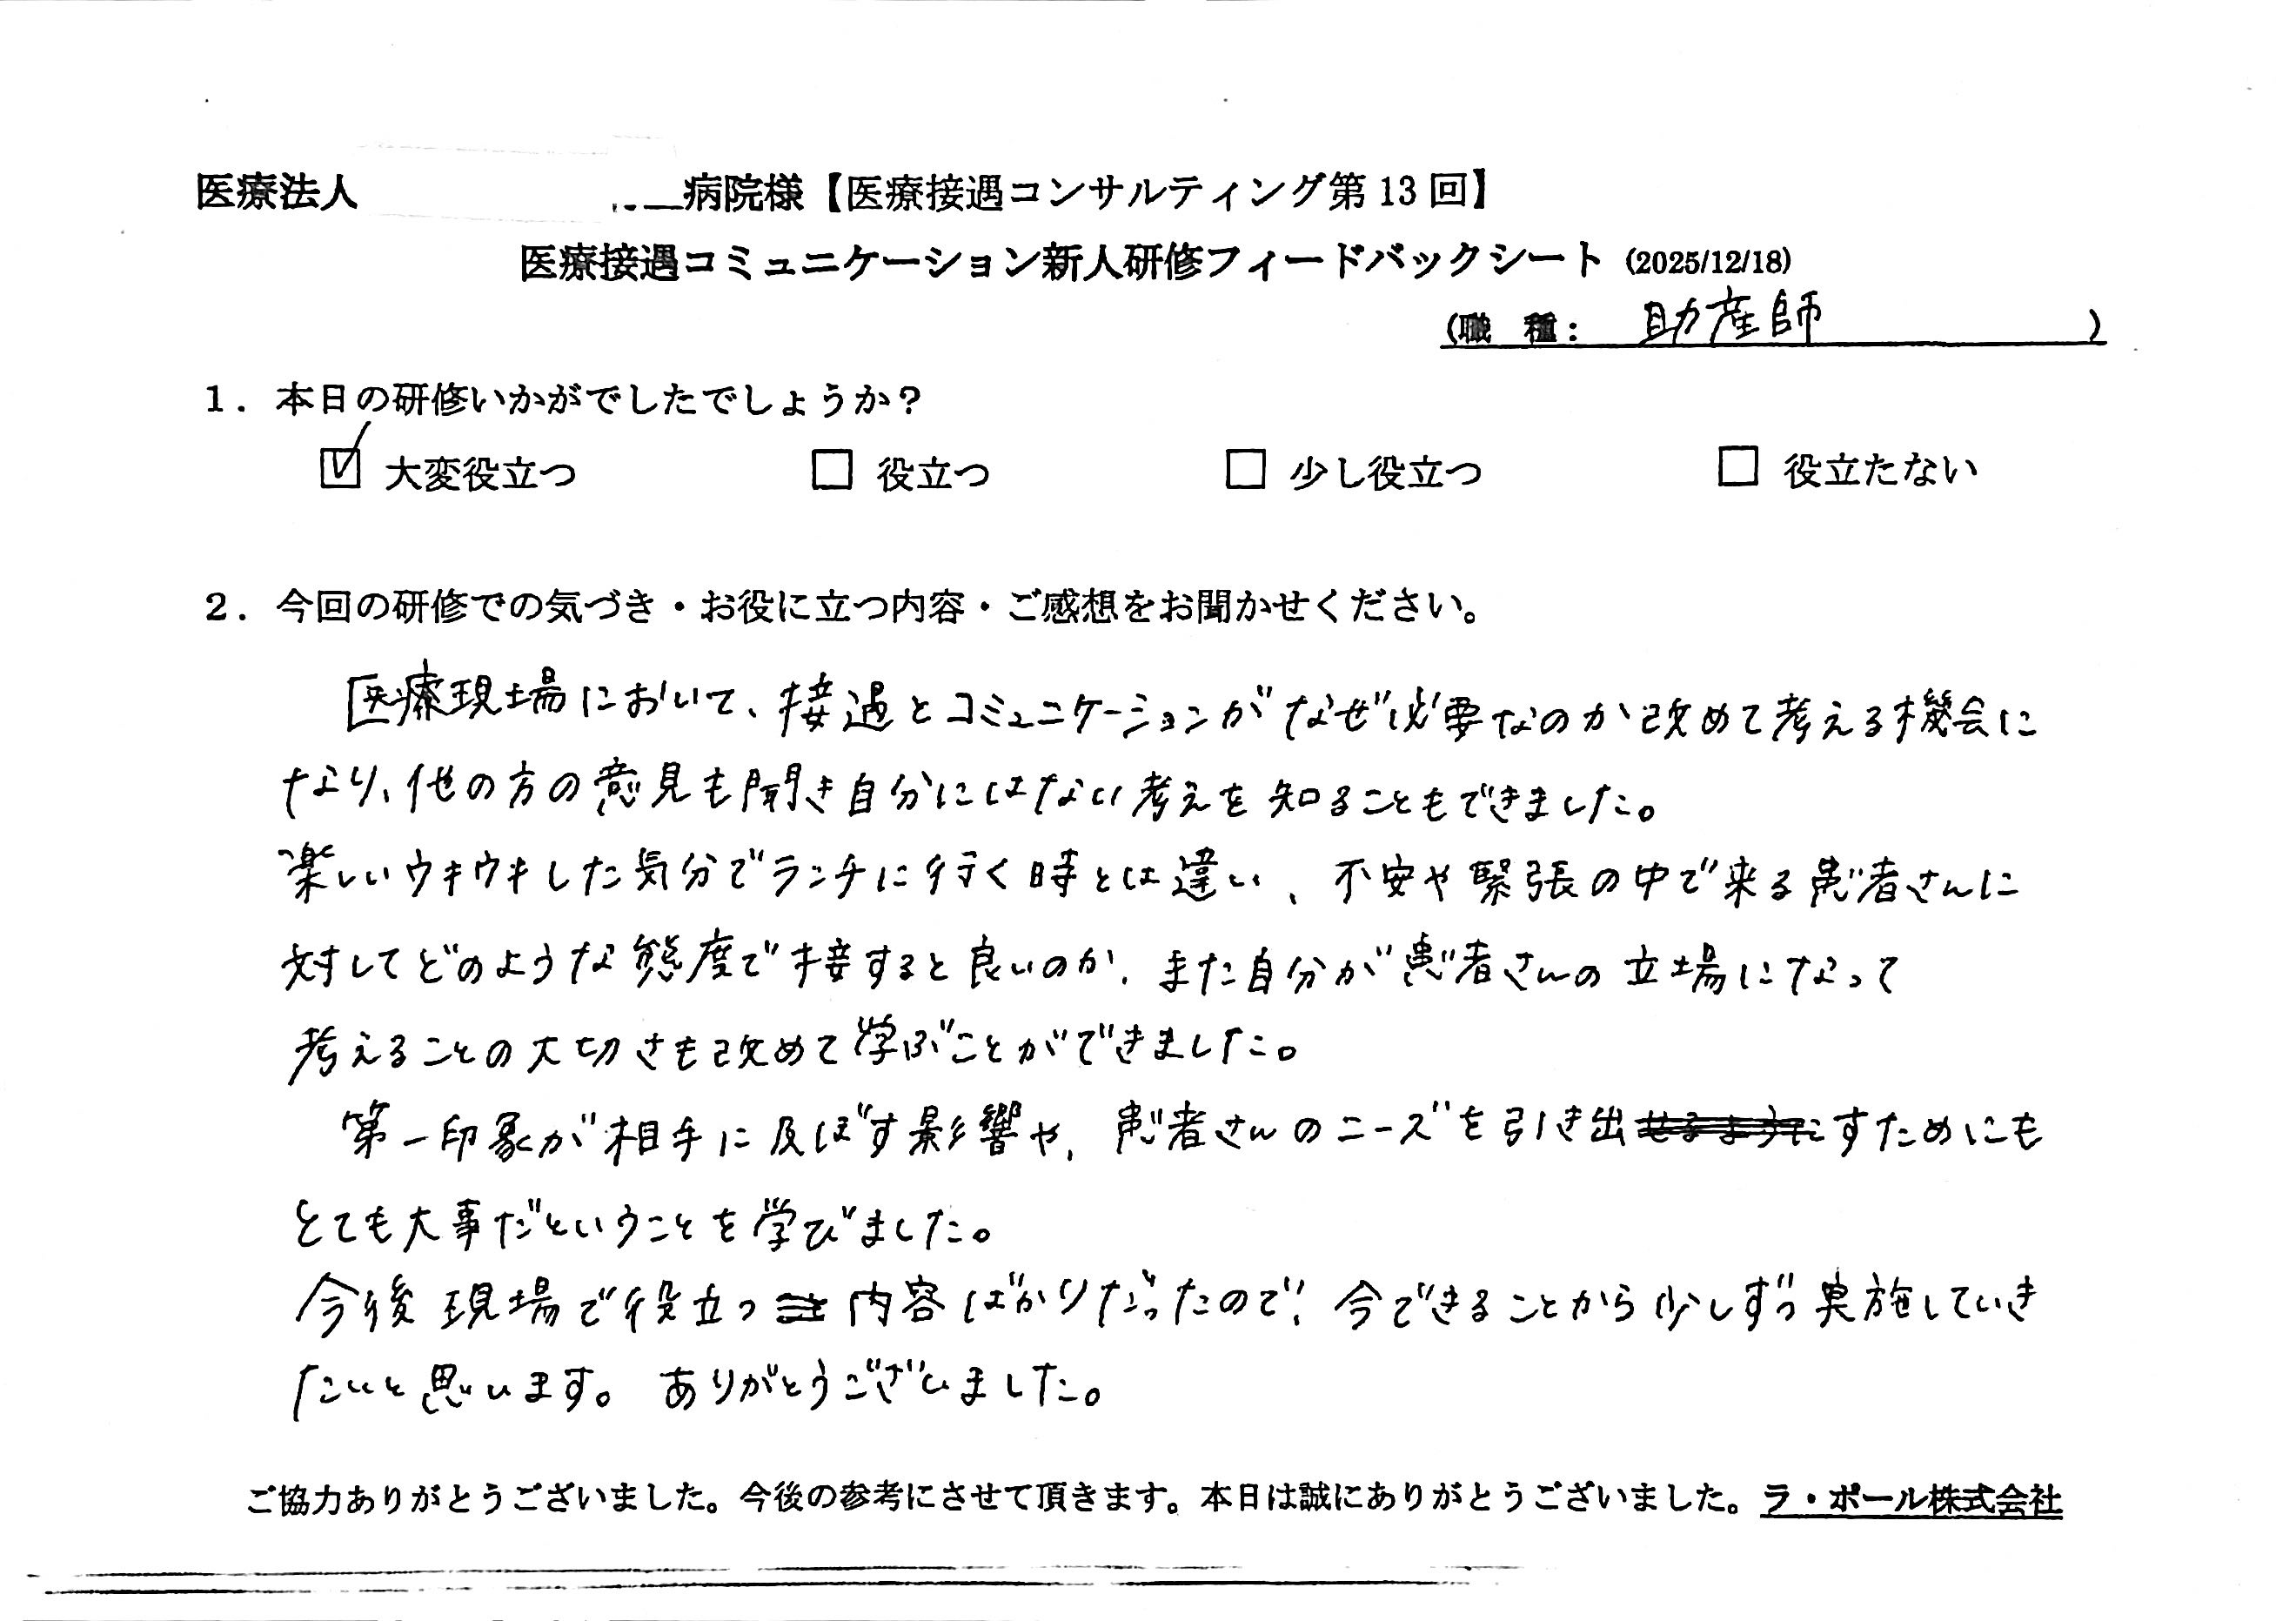 医療法人 病院様【医療接遇コンサルティング第 13 回】
医療接遇コミュニケーション新人研修フィードバックシート (2025/12/18)
(職 種: 助産師 )
1. 本日の研修いかがでしたでしょうか?
☑ 大変役立つ □ 役立つ □ 少し役立つ □ 役立たない
2. 今回の研修での気づき・お役に立つ内容・ご感想をお聞かせください。
医療現場において、接遇とコミュニケーションがなぜ必要なのか改めて考える機会に
なり、他の方の意見も聞き自分にはない考えを知ることもできました。
楽しいウキウキした気分でランチに行く時とは違い、不安や緊張の中で来る患者さんに
対してどのような態度で接すると良いのか、また自分が患者さんの立場になって
考えることの大切さも改めて学ぶことができました。
第一印象が相手に及ぼす影響や、患者さんのニーズを引き出すためにも
とても大事だということを学びました。
今後現場で役立つ内容ばかりだったので、今できることから少しずつ実施していき
たいと思います。ありがとうございました。
ご協力ありがとうございました。今後の参考にさせて頂きます。本日は誠にありがとうございました。ラ・ポール株式会社